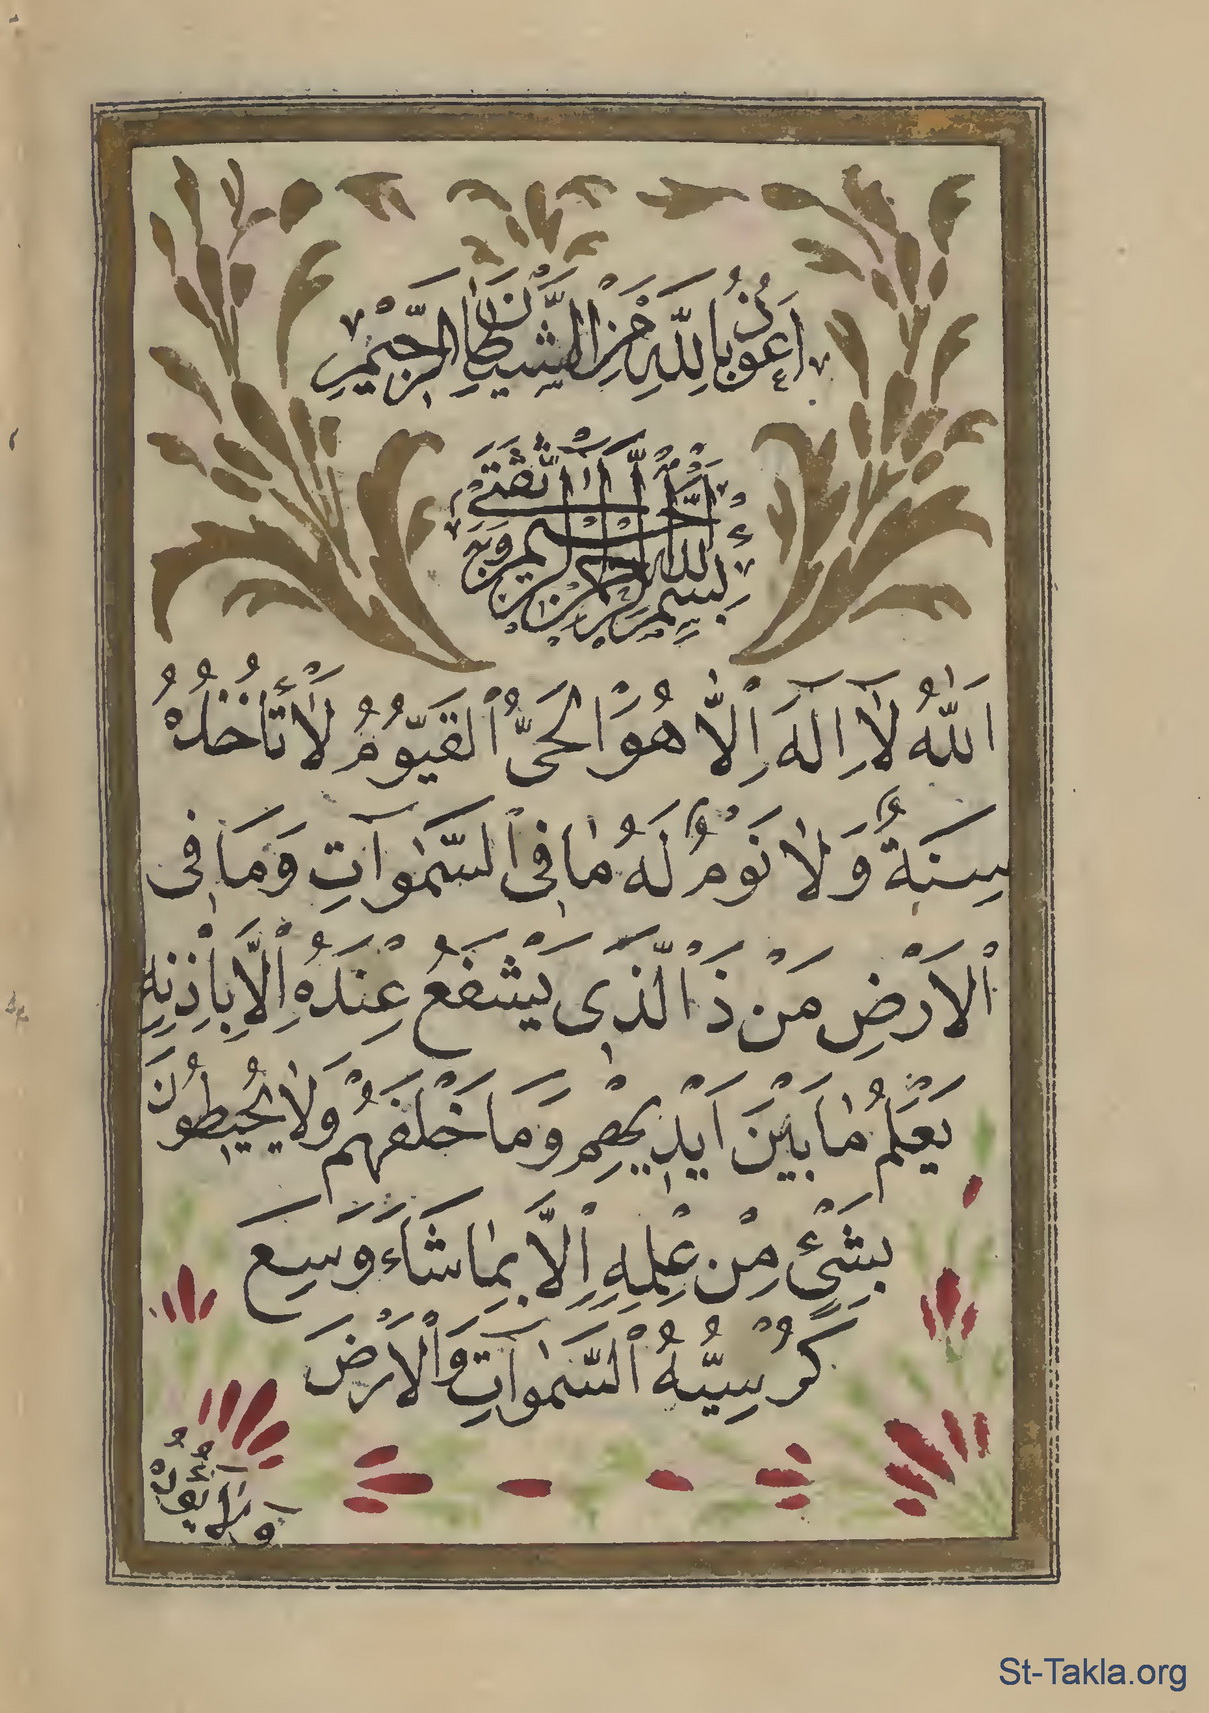 اَعُوذُ بِاللّٰهِ مِنَ الشَّيْطَانِ الرَّجِيْمِ
بِسْمِ اللّٰهِ الرَّحْمٰنِ الرَّحِيمِ وَبِهِ ثِقَتِى
اَللّٰهُ لَآ اِلٰهَ اِلَّا هُوَ الْحَىُّ الْقَيُّومُ لَا تَأْخُذُهُ
سِنَةٌ وَلَا نَوْمٌ لَهُ مَا فِى السَّمٰوَاتِ وَمَا فِى
الْاَرْضِ مَنْ ذَا الَّذِى يَشْفَعُ عِنْدَهُ اِلَّا بِاِذْنِهِ
يَعْلَمُ مَا بَيْنَ اَيْدِيهِمْ وَمَا خَلْفَهُمْ وَلَا يُحِيطُونَ
بِشَىْءٍ مِنْ عِلْمِهِ اِلَّا بِمَا شَاءَ وَسِعَ
كُرْسِيُّهُ السَّمٰوَاتِ وَالْاَرْضَ
وَلَا يَؤُدُهُ
St-Takla.org